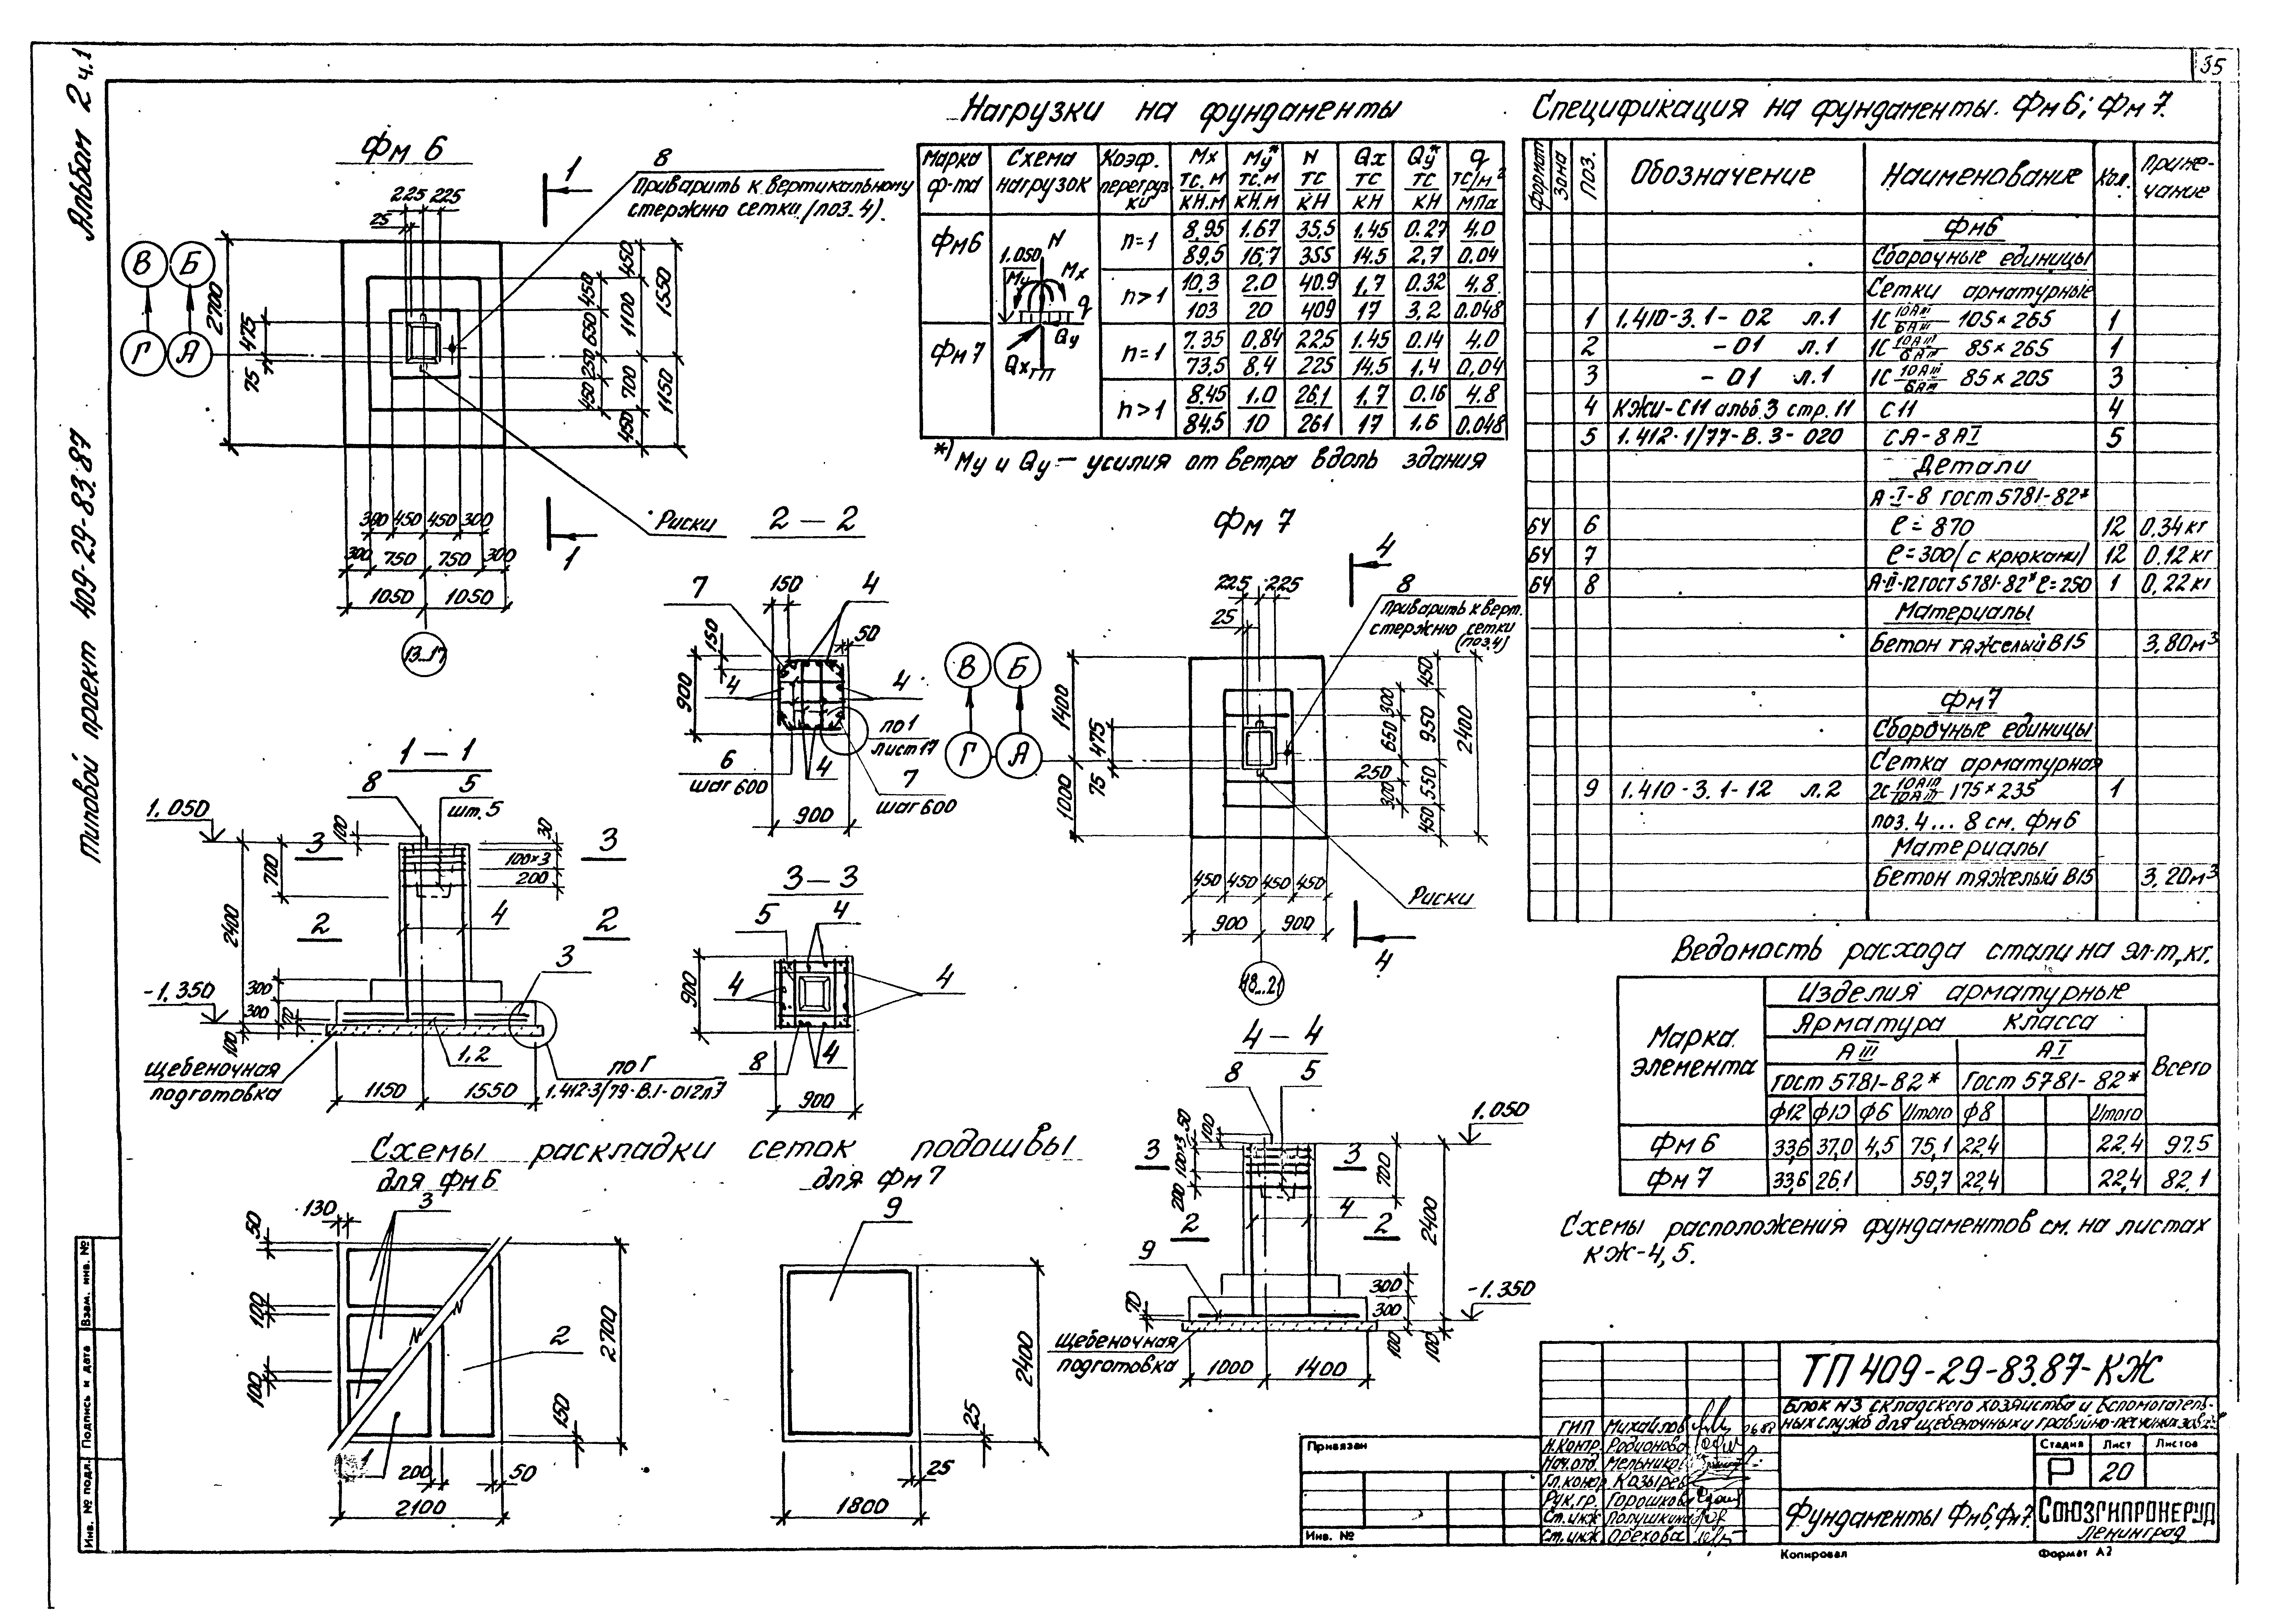 35
Альбом 2 ч.1
типовой проект 409-29-83.87
Фм 6
8
Приварить к вертикальному
стержню сетки (поз. 4).
1
225 225
25
В Б
Г А
2700
475
75
450
1100
700
450
450
650
250
450
1550
1150
300 450 450 300
300 750 750 300
1050 1050
13...17
Риски
1
2 – 2
7
150
4
50
150
900
4
4
по 1
лист 17
6
шаг 600
4
7
шаг 600
900
1 – 1
8
5
шт. 5
1.050
100
30
3
3
100×3
200
700
2400
2
2
4
3
-1.350
300
300
70
100
1,2
щебеночная
подготовка
по Г
1.412-3/79-В.1-012л7
1150
1550
3 – 3
5
4
4
4
900
8
4
900
Нагрузки на фундаменты
Марка ф-та
Схема нагрузок
Коэф. перегрузки
Mx тс.м кН.м
My* тс.м кН.м
N тс кН
Qx тс кН
Qy* тс кН
q тс/м² МПа
Фм6
n=1
8.95 1.67 35,5 1.45 0.27 4.0
89,5 16.7 355 14.5 2,7 0.04
n>1
10,3 2.0 40.9 1,7 0.32 4.8
103 20 409 17 3,2 0.048
Фм7
n=1
7.35 0,84 22,5 1.45 0.14 4.0
73,5 8,4 225 14.5 1,4 0,04
n>1
8.45 1.0 26,1 1,7 0.16 4.8
84,5 10 261 17 1,6 0.048
1.050
N
My
Mx
q
Qy
Qx
ГП
*) My и Qy – усилия от ветра вдоль здания
Фм 7
4
225 225
25
8
Приварить к верт.
стержню сетки
(поз.4)
В Б
Г А
1400
1000
475
75
300
650
250
300
450
950
550
450
2400
450 450 450 450
900 900
18...21
Риски
4
4 – 4
8
5
1.050
50
100
100×3
200
3
3
700
2400
4
2
2
9
70
300
300
-1.350
100
100
щебеночная
подготовка
1000
1400
Схемы раскладки сеток подошвы
для Фм6
для Фм7
130
3
50
100
100
2
2700
150
1
200
50
2100
9
2400
25
25
1800
Спецификация на фундаменты. Фм6; Фм7.
Формат Зона Поз. Обозначение Наименование Кол. Примечание
Фм6
Сборочные единицы
Сетки арматурные
1 1.410-3.1-02 л.1 1С 10АIII/6АIII 105×265 1
2 -01 л.1 1С 10АIII/6АIII 85×265 1
3 -01 л.1 1С 10АIII/6АIII 85×205 3
4 КЖИ-С11 альб.3 стр.11 С11 4
5 1.412-1/77-В.3-020 СА-8АI 5
Детали
А-I-8 гост 5781-82*
БЧ 6 ℓ=870 12 0.34кг
БЧ 7 ℓ=300 (с крюками) 12 0.12кг
БЧ 8 А-III-12 ГОСТ 5781-82* ℓ=250 1 0,22кг
Материалы
Бетон тяжелый В15 3,80м3
Фм7
Сборочные единицы
Сетка арматурная
9 1.410-3.1-12 л.2 2С 10АIII/10АIII 175×235 1
поз.4...8 см. Фм6
Материалы
Бетон тяжелый В15 3,20м3
Ведомость расхода стали на эл-т, кг.
Марка элемента
Изделия арматурные
Арматура класса
АIII АI Всего
гост 5781-82* Гост 5781-82*
ф12 ф10 ф6 Итого ф8 Итого
Фм 6 33,6 37,0 4,5 75,1 22,4 22.4 97.5
Фм 7 33,6 26.1 59,7 22,4 22,4 82.1
Схемы расположения фундаментов см. на листах
КЖ-4,5.
ТП 409-29-83.87-КЖ
Блок №3 складского хозяйства и вспомогатель-
ных служб для щебеночных и гравийно-песчаных
ГИП Михайлов
Н.контр. Родионова
Нач.отд. Мельников
Гл.констр. Козырев
Рук.гр. Горошков
Ст.инж. Полушкина
Ст.инж. Орехова
Стадия Лист Листов
Р 20
Фундаменты Фм6, Фм7.
Союзгипронеруд
Ленинград
Привязан
Инв. №
Копировал
Формат А2
Взам. инв. №
Подпись и дата
Инв. № подл.